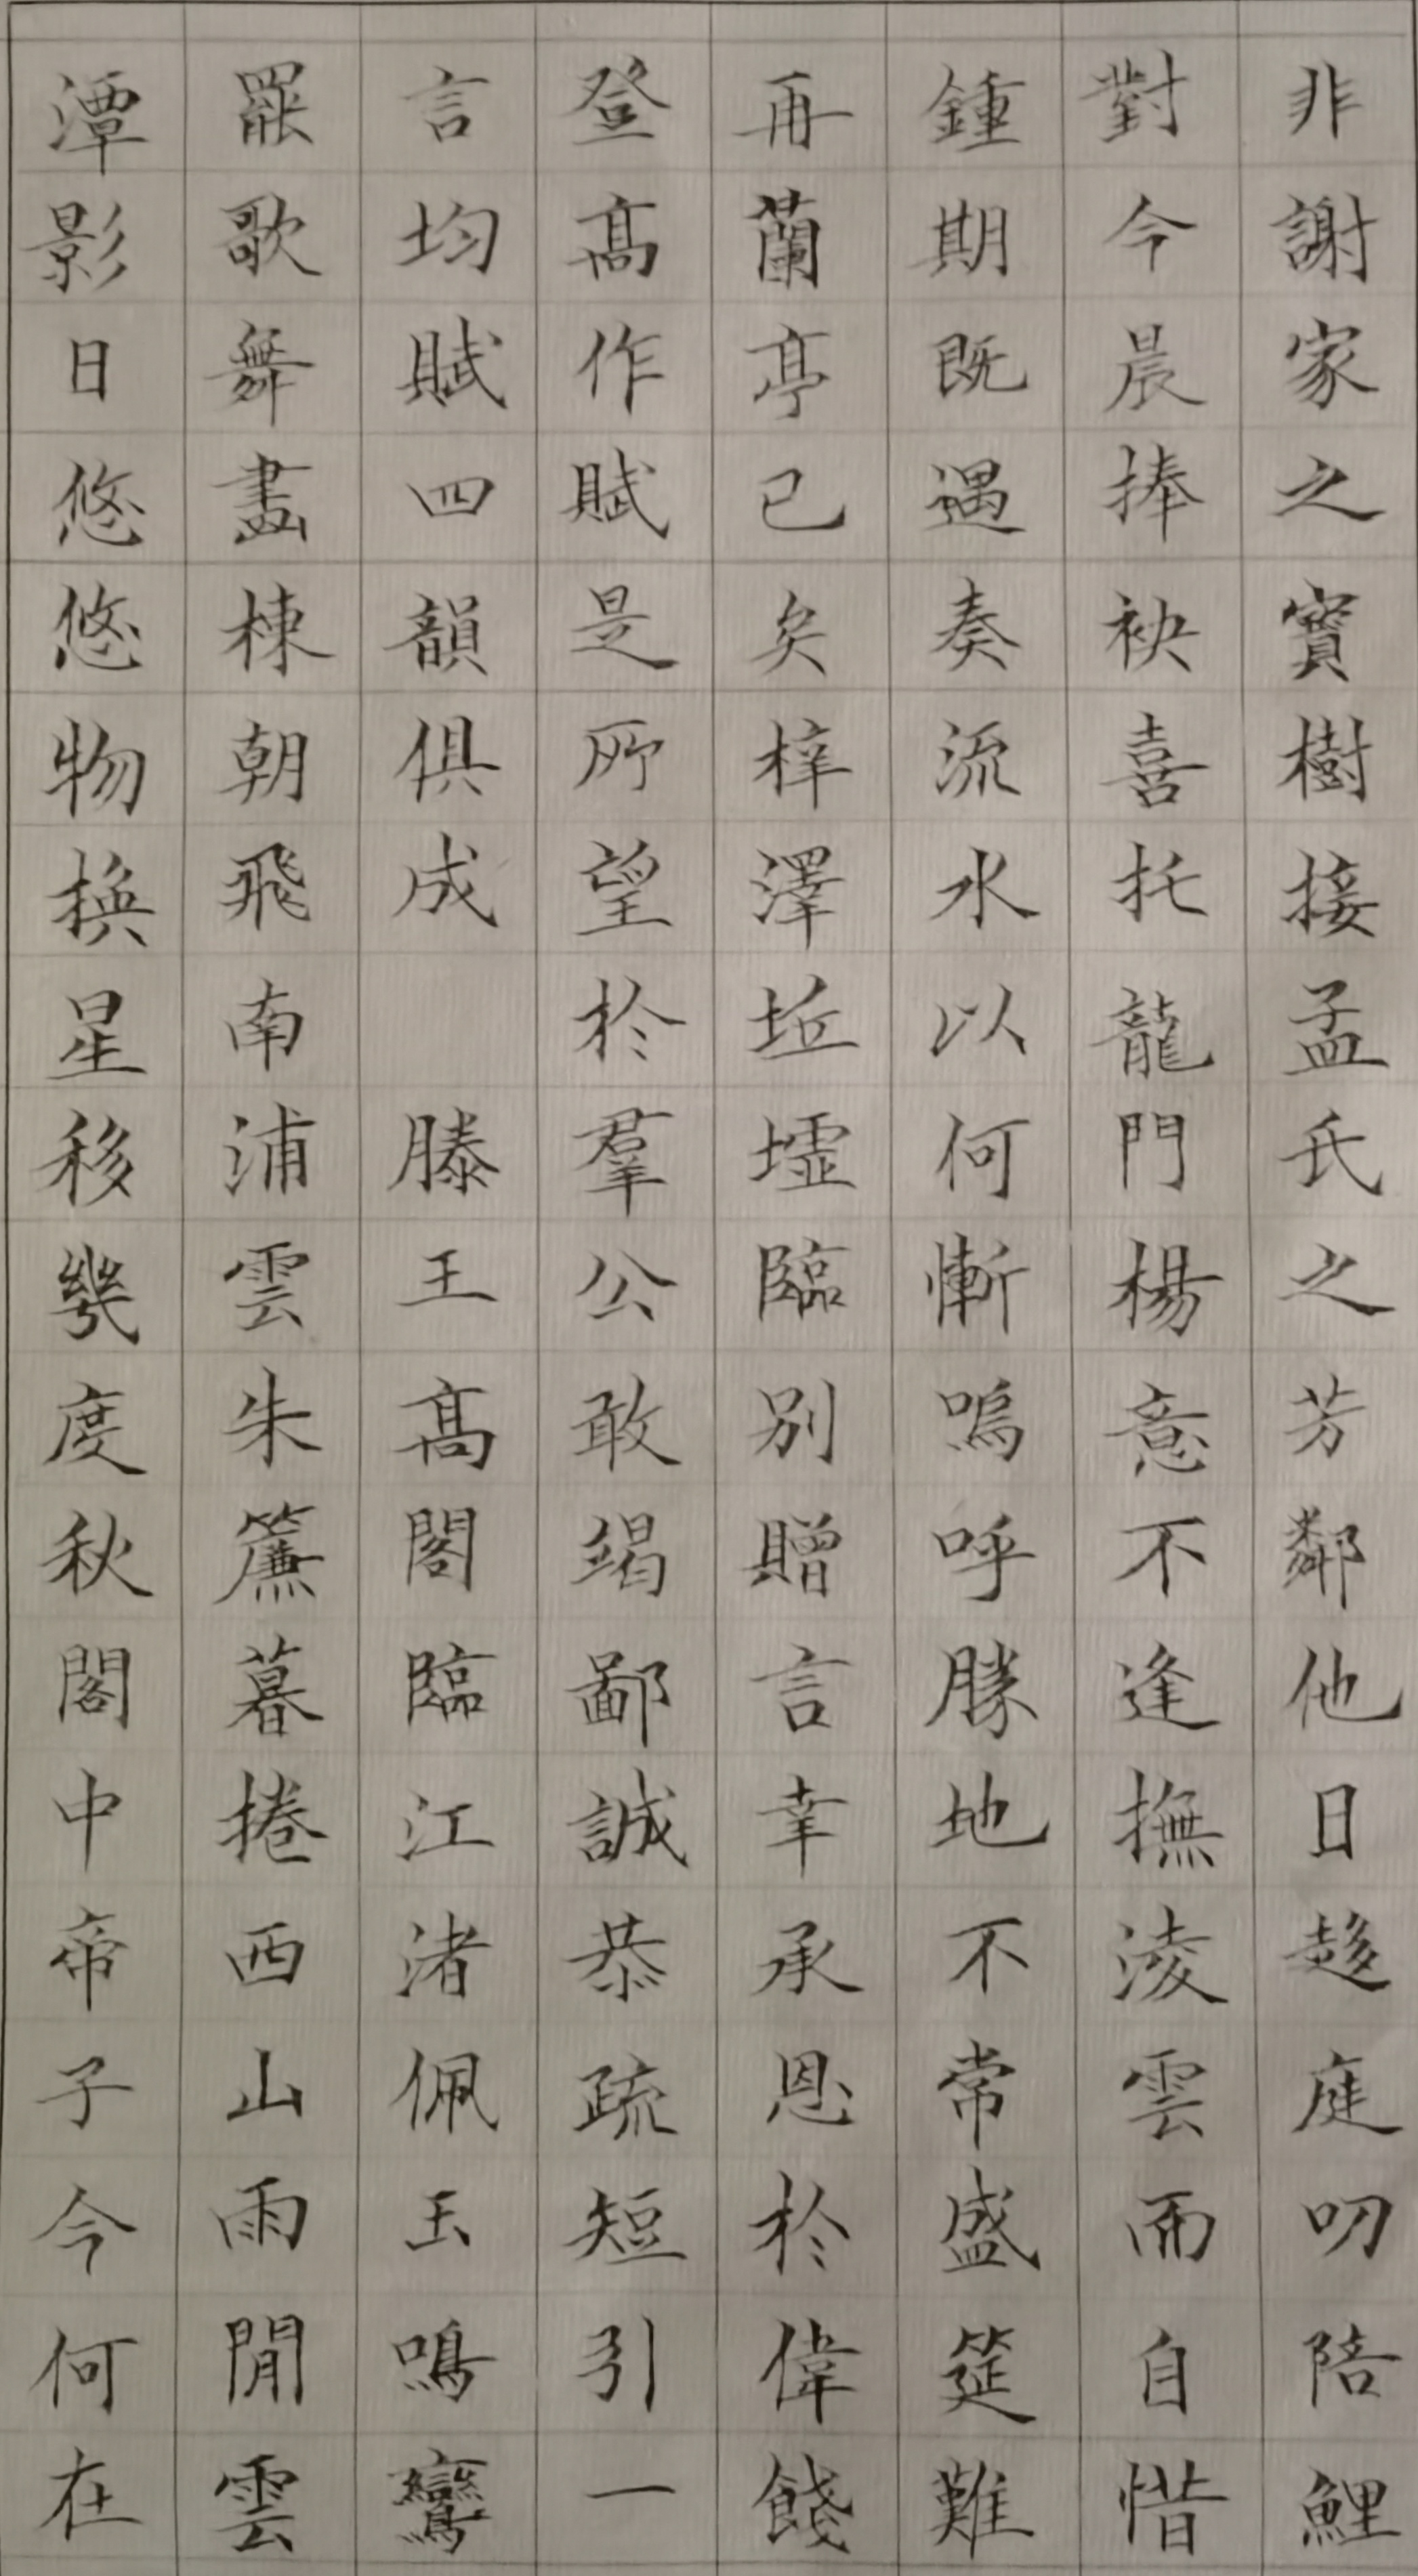 非謝家之寶樹接孟氏之芳鄰他日趍庭叨陪鯉
對今晨捧袂喜托龍門楊意不逢撫淩雲而自惜
鍾期既遇奏流水以何慚嗚呼勝地不常盛筵難
再蘭亭已矣梓澤坵墟臨別贈言幸承恩於偉餞
登髙作賦是所望於羣公敢竭鄙誠恭疏短引一
言均賦四韻俱成 滕王髙閣臨江渚佩玉鳴鸞
罷歌舞畫棟朝飛南浦雲朱簾暮捲西山雨閒雲
潭影日悠悠物換星移幾度秋閣中帝子今何在